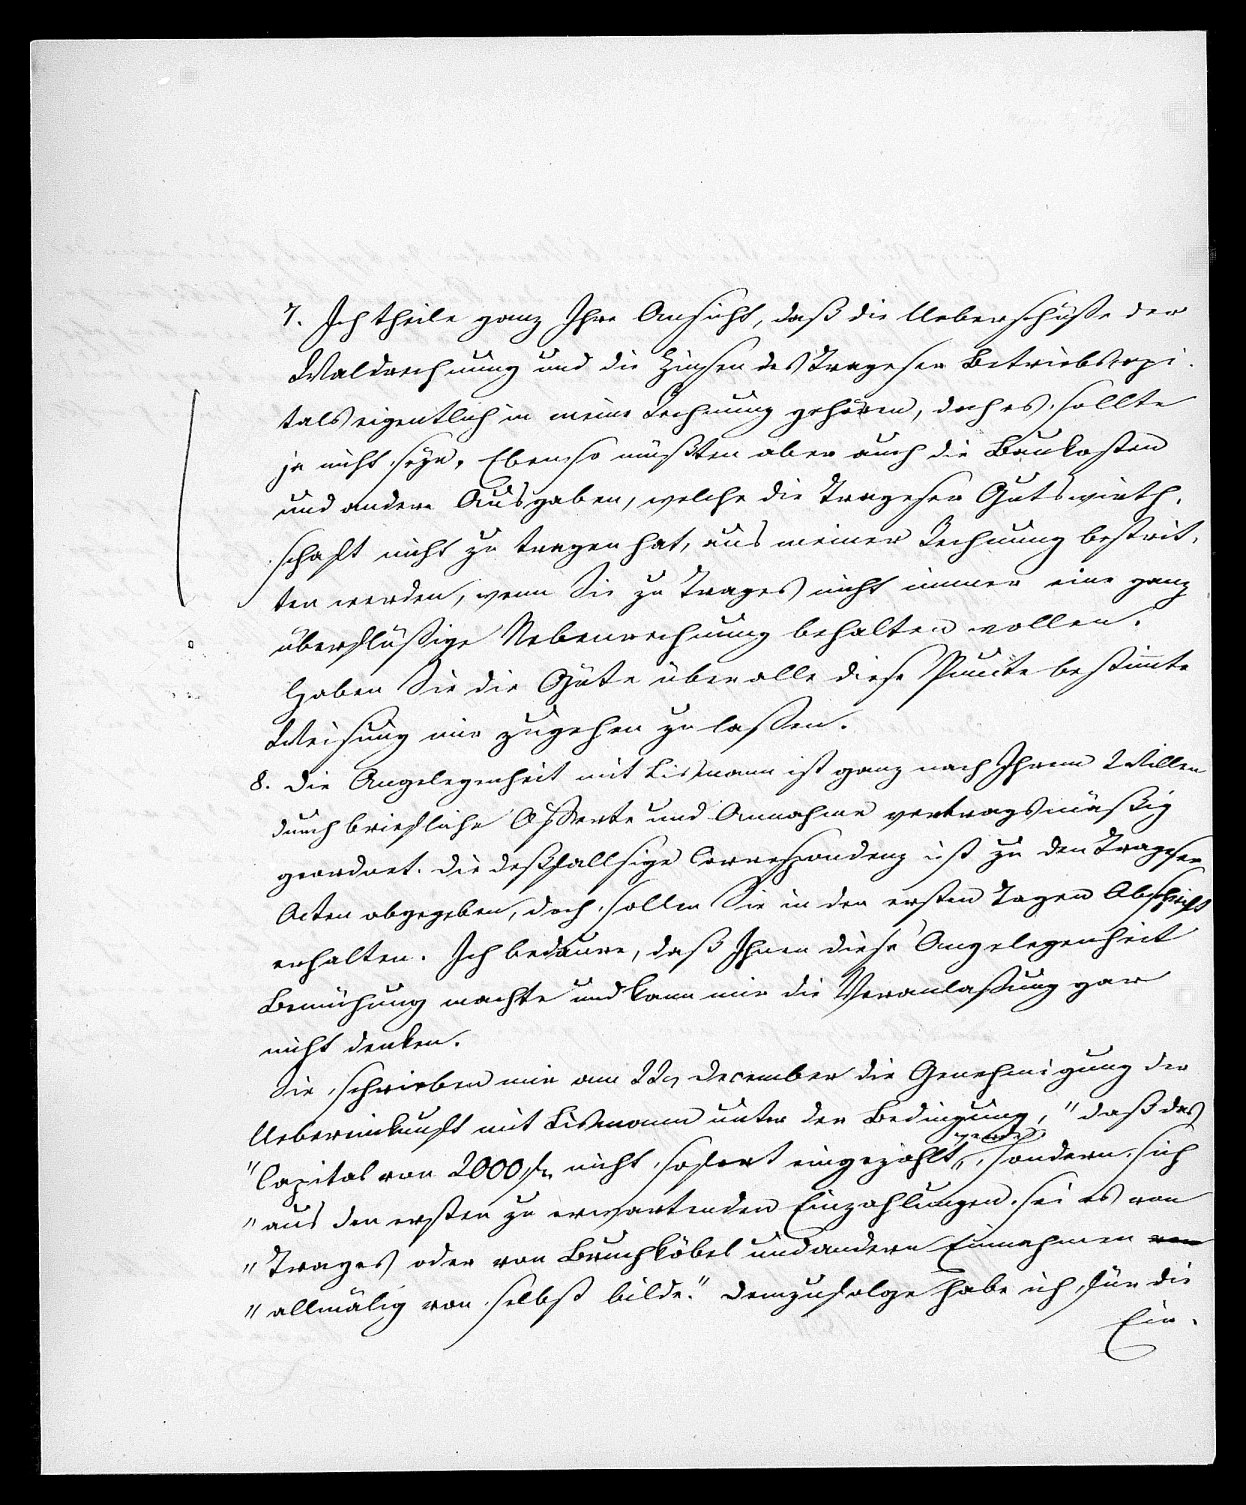 7. Ich theile ganz Ihre Ansicht, daß die Ueberschüße der
Waldrechnung und die Zinsen des Trageser Betriebskapi-
tals eigentlich in meine Rechnung gehören, doch es sollte
ja nicht seyn. Ebenso müßten aber auch die Baukosten
und andere Ausgaben, welche die Trageser Gutswirth-
schaft nicht zu tragen hat, aus meiner Rechnung bestrit-
ten werden, wenn Sie zu Trages nicht immer eine ganz
überflüßige Nebenrechnung behalten wollen.
Haben Sie die Güte über alle diese Puncte bestimmte
Weisung mir zugehen zu laßen.
8. Die Angelegenheit mit Lismann ist ganz nach Ihrem Willen
durch briefliche Offerte und Annahme vertragsmäßig
geordnet. Die deßfallsige Correspondenz ist zu den Trageser
Acten abgegeben, doch sollen Sie in den ersten Tagen Abschrift
erhalten. Ich bedaure, daß Ihnen diese Angelegenheit
Bemühung machte und kann mir die Veranlaßung gar
nicht denken.
Sie schrieben mir am 22n December die Genehmigung der
Uebereinkunft mit Lismann unter der Bedingung, "daß das
"Capital von 2000 fl. nicht sofort eingezahlt werde, sondern sich
"aus den ersten zu erwartenden Einzahlungen sei es von
"Trages oder von Bruchköbel und andern Einnahmen von
"allmälig von selbst bilde." Demzufolge habe ich für die
Ein-